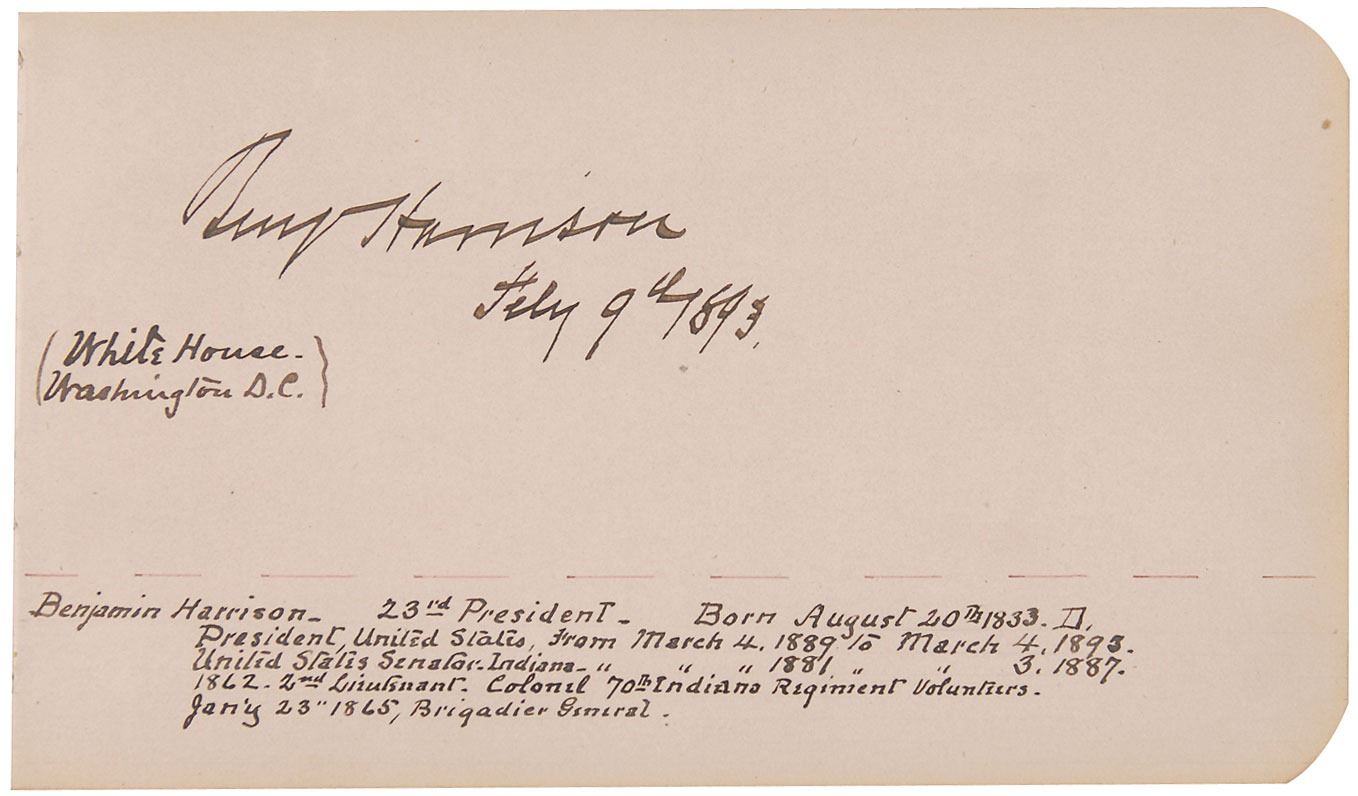 Benj Harrison
Feby 9th 1893.
(White House.
Washington D.C.)
Benjamin Harrison. 23rd President. Born August 20th 1833. D.
President, United States, From March 4. 1889 to March 4. 1893.
United States Senator. Indiana. " " " 1881 " " 3. 1887.
1862. 2nd Lieutenant. Colonel 70th Indiana Regiment Volunteers.
Jan'y 23" 1865, Brigadier General.